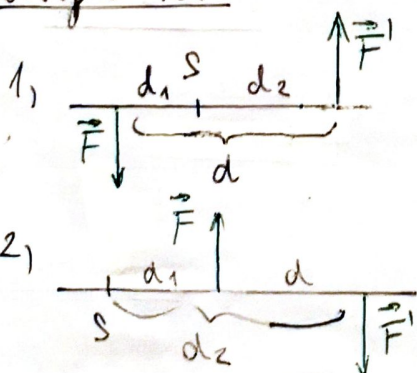 1,
d₁ S d₂ F⃗'
F⃗
d
2,
F⃗
d₁ d
S d₂ F⃗'